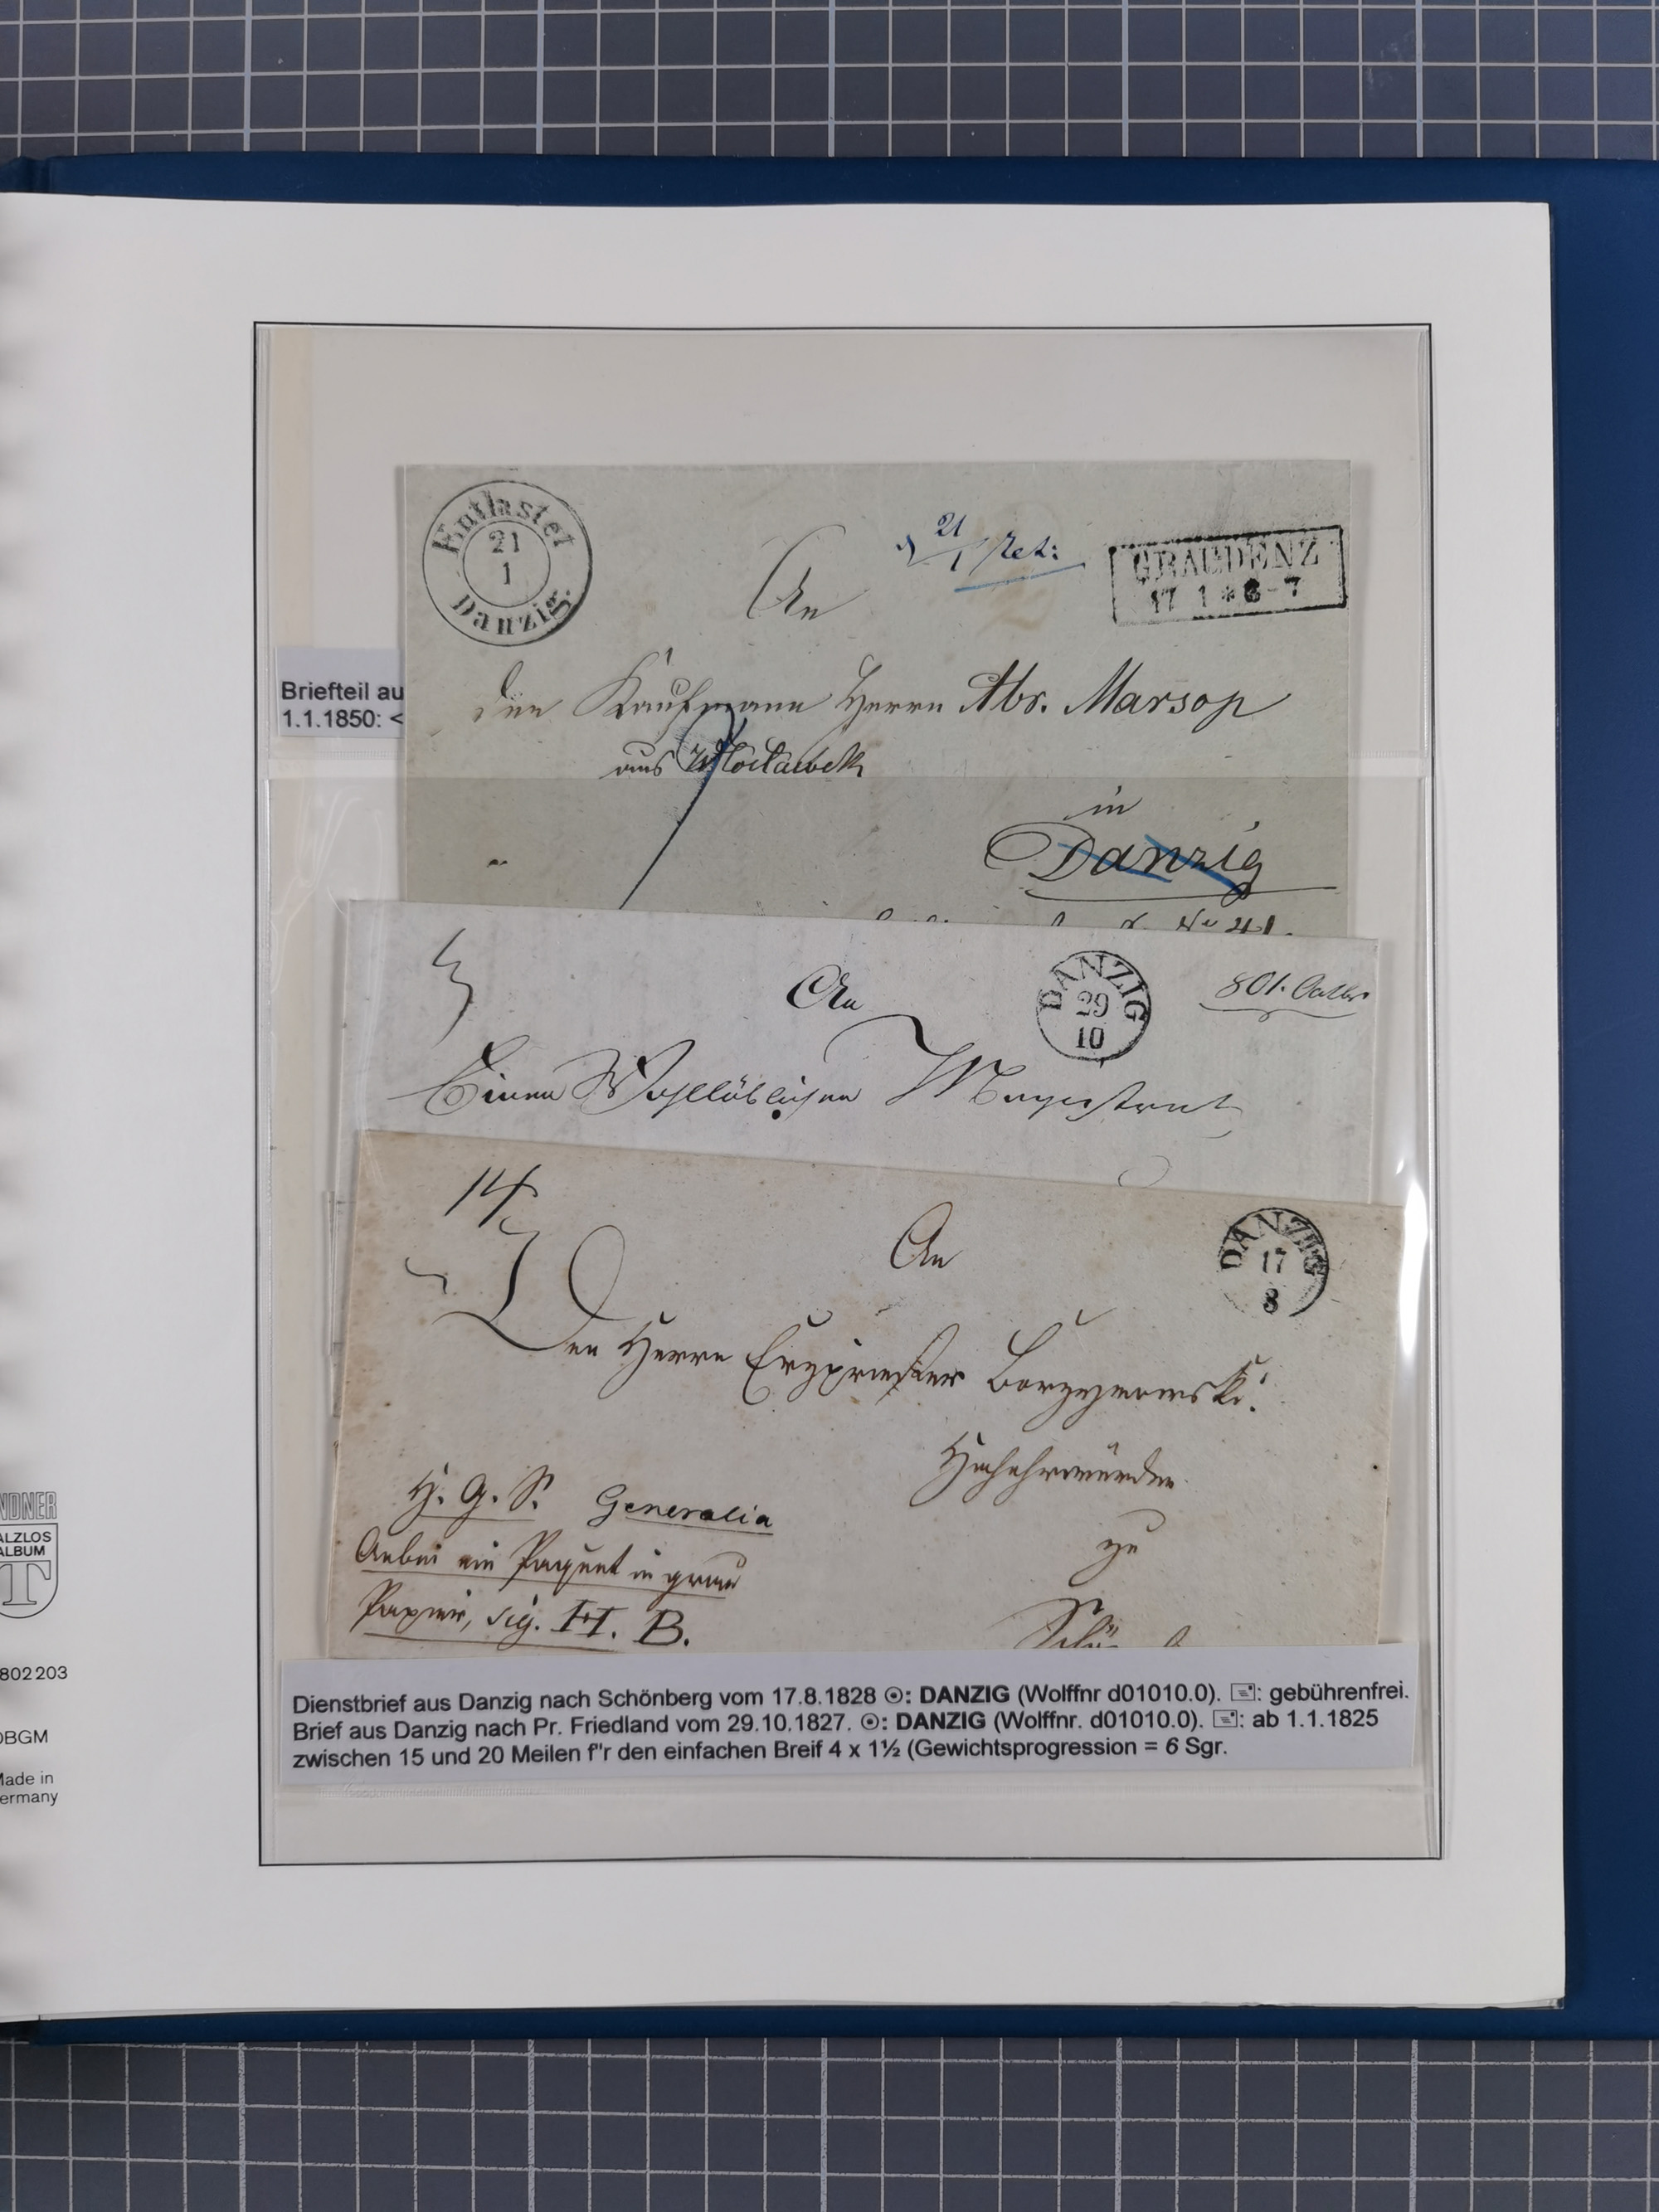 Entlastet
21
1
Danzig.
21
1 Ret:
GRAUDENZ
17 1 * 6-7
An
den Kaufmann Herrn Abr. Marsop
aus Wloclawek
in
Danzig
No 41.
Briefteil au
1.1.1850: <
An
DANZIG
29
10
801.
Einen Wohllöblichen Magistrat
14
An
DANZIG
17
8
Den Herrn Erzpriester
Hochehrwürden
zu
H. G. S. Generalia
Anbei ein Paquet in grau
Papier, sig. H. B.
Dienstbrief aus Danzig nach Schönberg vom 17.8.1828 ⦿: DANZIG (Wolffnr d01010.0). 🖃: gebührenfrei.
Brief aus Danzig nach Pr. Friedland vom 29.10.1827. ⦿: DANZIG (Wolffnr. d01010.0). 🖃: ab 1.1.1825
zwischen 15 und 20 Meilen f"r den einfachen Breif 4 x 1½ (Gewichtsprogression = 6 Sgr.
NDNER
ALZLOS
ALBUM
T
802 203
DBGM
Made in
ermany